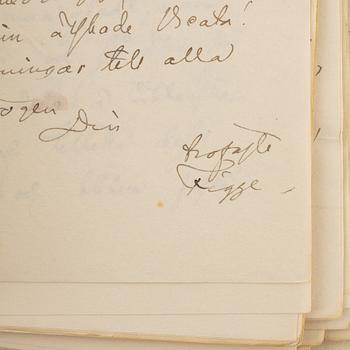 in älskade Beata!
ningar till alla
Din
trofaste
Figge